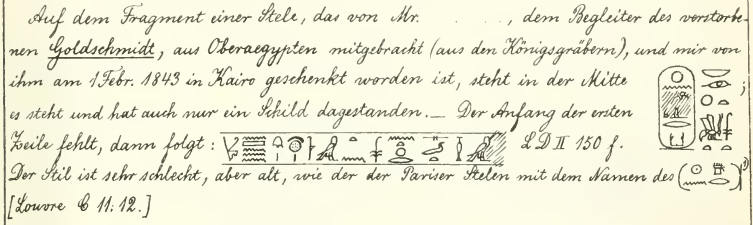 Auf dem Fragment einer Stele, das von Mr. . . . . . , dem Begleiter des verstorbe-
nen Goldschmidt, aus Oberaegypten mitgebracht (aus den Königsgräbern), und mir von
ihm am 1 Febr. 1843 in Kairo geschenkt worden ist, steht in der Mitte
es steht und hat auch nur ein Schild dagestanden. _ Der Anfang der ersten
Zeile fehlt, dann folgt: LD II 150 f.
Der Stil ist sehr schlecht, aber alt, wie der der Pariser Stelen mit dem Namen des
[Louvre C 11; 12.]